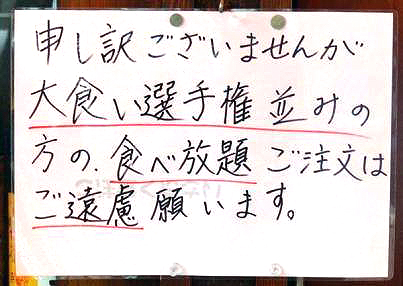 申し訳ございませんが
大食い選手権並みの
方の、食べ放題ご注文は
ご遠慮願います。